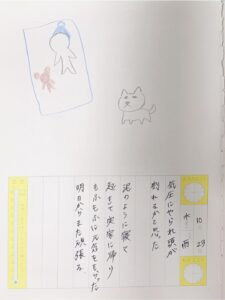 10 29
水 雨
気圧にやられ頭が
割れるかと思った
泥のように寝て
起きて実家に帰り
もふもふに元気をもらった
明日からまた頑張る